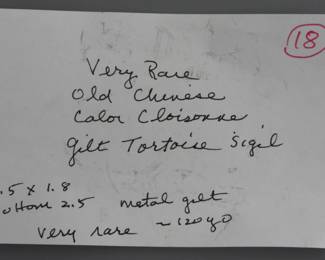 18
Very Rare
Old Chinese
Color Cloisonne
Gilt Tortoise Sigil
.5 x 1.8
ottom 2.5 metal gilt
very rare ~ 120 yo